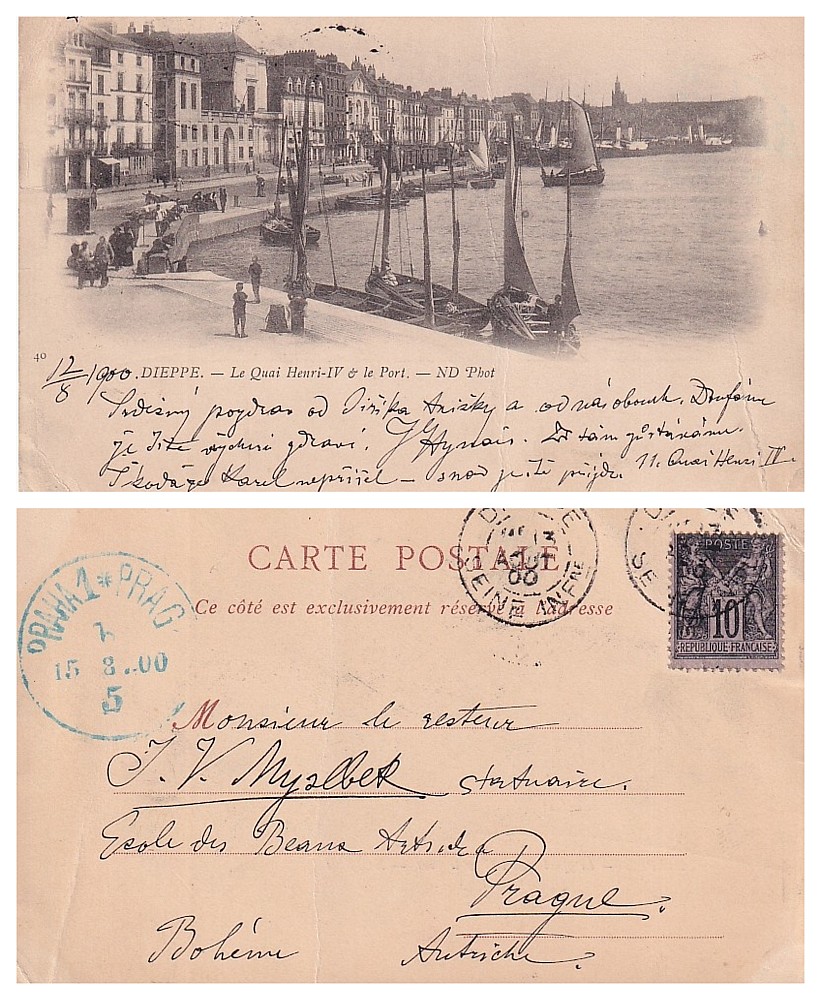 40
12/8 1900. DIEPPE. — Le Quai Henri-IV & le Port. — ND Phot
Srdečný pozdrav od Jiříka Anižky a od nás obouch. Doufáme
že Jste všichni zdraví. Hynais. zůstáváme.
Škoda že Karel nepřišel — snad ještě přijde. 11. Quai Henri IV.
CARTE POSTALE
Ce côté est exclusivement réservé à l'adresse
DIEPPE
13
AOUT
00
SEINE INFRE
SE
POSTE
10
REPUBLIQUE FRANÇAISE
PRAHA 1 * PRAG
15 8 .00
5
Monsieur le recteur
J. V. Myslbek statuaire.
Ecole des Beaux Arts de
Prague.
Bohéme Autriche.